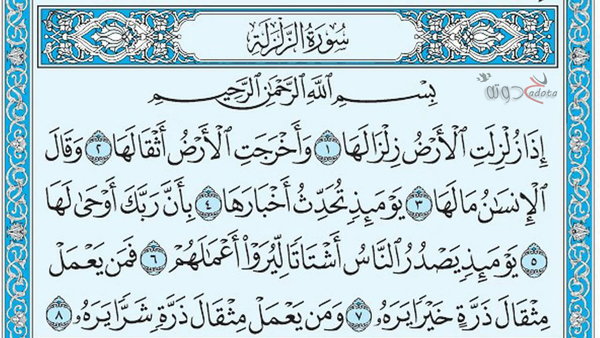 سُورَةُ الزَّلْزَلَةِ
بِسْمِ اللَّهِ الرَّحْمَٰنِ الرَّحِيمِ
إِذَا زُلْزِلَتِ الْأَرْضُ زِلْزَالَهَا ١ وَأَخْرَجَتِ الْأَرْضُ أَثْقَالَهَا ٢ وَقَالَ
الْإِنسَٰنُ مَالَهَا ٣ يَوْمَئِذٍ تُحَدِّثُ أَخْبَارَهَا ٤ بِأَنَّ رَبَّكَ أَوْحَىٰ لَهَا
٥ يَوْمَئِذٍ يَصْدُرُ النَّاسُ أَشْتَاتًا لِّيُرَوْا أَعْمَٰلَهُمْ ٦ فَمَن يَعْمَلْ
مِثْقَالَ ذَرَّةٍ خَيْرًا يَرَهُۥ ٧ وَمَن يَعْمَلْ مِثْقَالَ ذَرَّةٍ شَرًّا يَرَهُۥ ٨